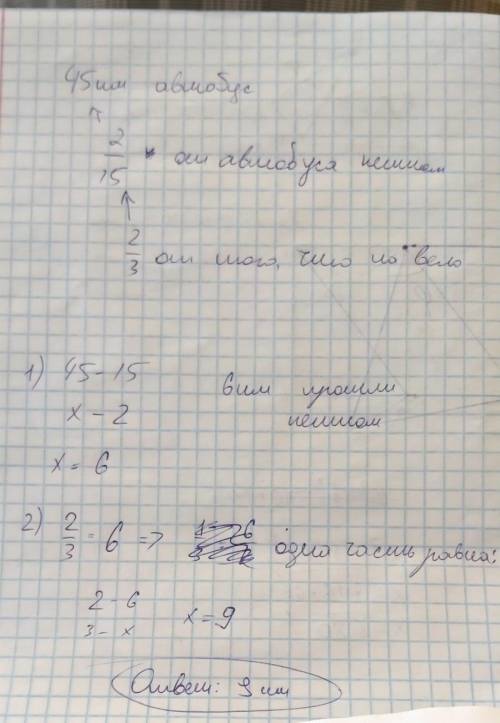 45 км автобус
2/15 от автобуса пешком
2/3 от того, что на вело
1) 45 - 15
x - 2
6 км прошли
пешком
x = 6
2) 2/3 = 6 => одна часть равна:
2 - 6
3 - x
x = 9
Ответ: 9 км